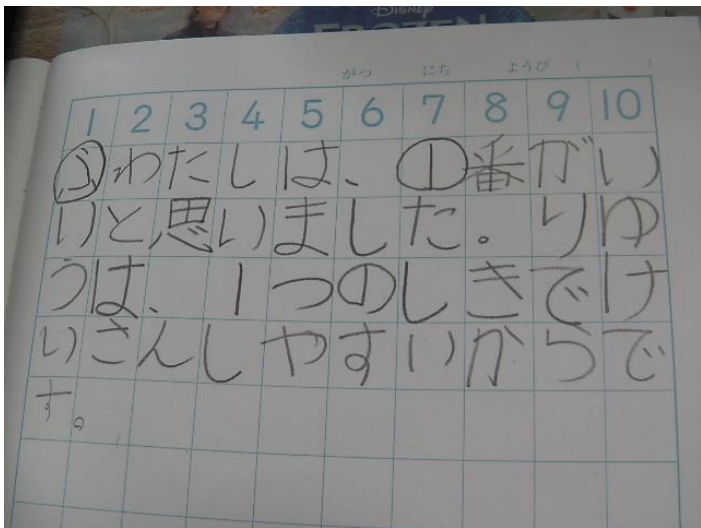 Disney
FROZEN
がつ にち ようび ( )
1 2 3 4 5 6 7 8 9 10
ふわたしは、①番がい
いと思いました。りゆ
うは、1つのしきでけ
いさんしやすいからで
す。